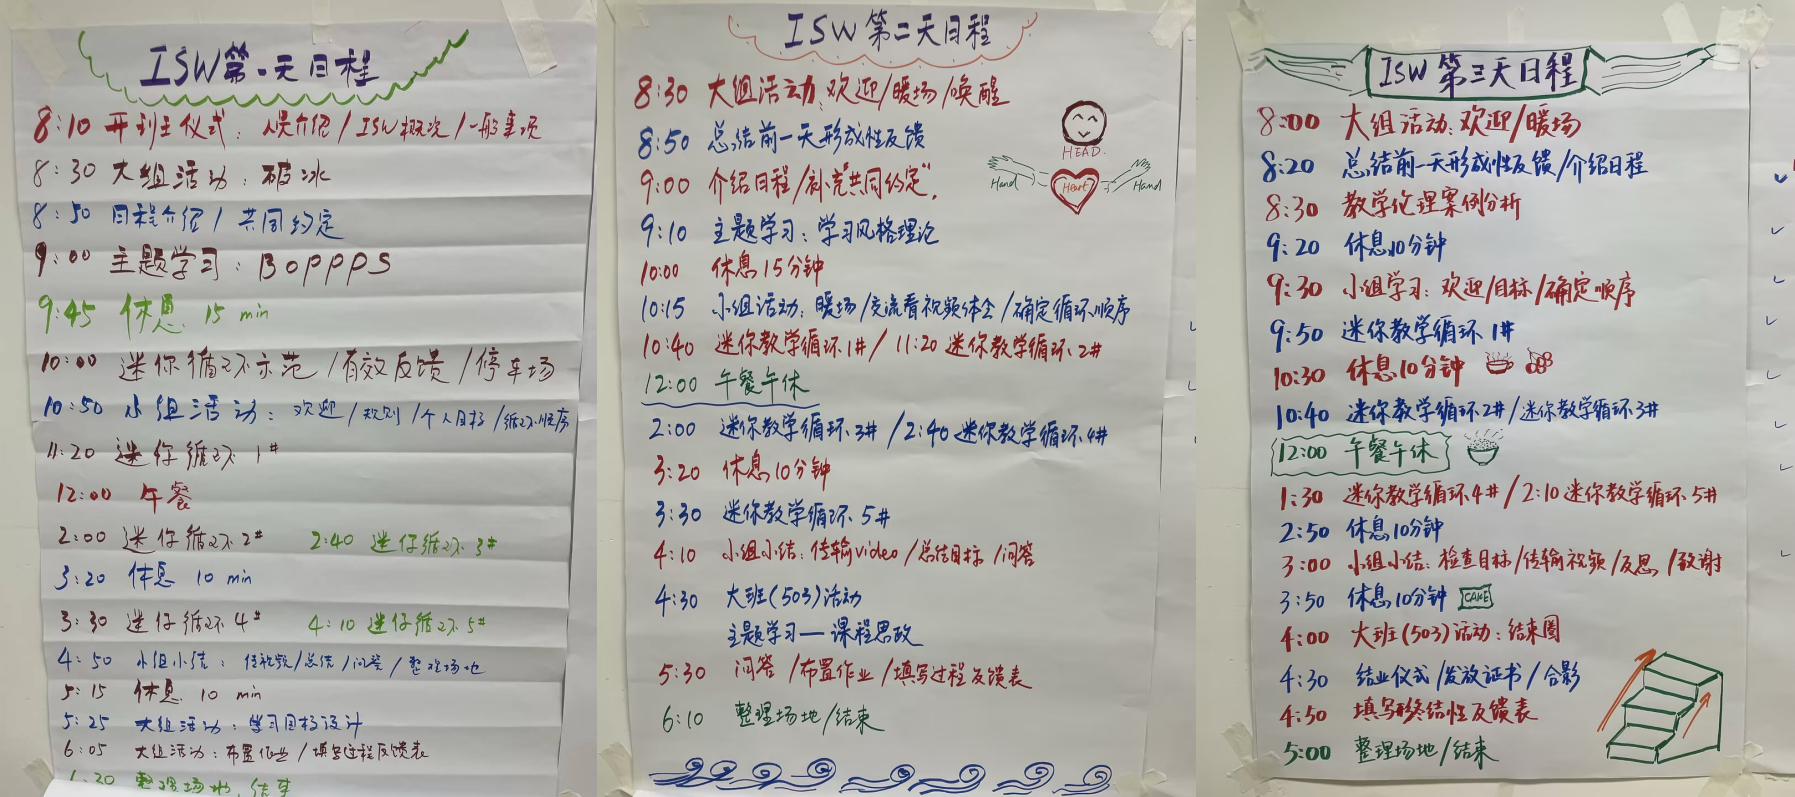 ISW第一天日程
8:10 开到主仪式：人员介绍/ISW概况/一般事项
8:30 大组活动：破冰
8:50 日程介绍/共同约定
9:00 主题学习：BOPPPS
9:45 休息 15 min
10:00 迷你循环示范/有效反馈/停车场
10:50 小组活动：欢迎/规则/个人目标/循环顺序
11:20 迷你循环1#
12:00 午餐
2:00 迷你循环2# 2:40 迷你循环3#
3:20 休息 10 min
3:30 迷你循环4# 4:10 迷你循环5#
4:50 小组小结：传视频/总结/问答/整理场地
5:15 休息 10 min
5:25 大组活动：学习目标设计
6:05 大组活动：布置作业/填写过程反馈表
整理场地，结束
ISW第二天日程
8:30 大组活动：欢迎/暖场/唤醒
8:50 总结前一天形成性反馈
9:00 介绍日程/补充"共同约定"。
9:10 主题学习：学习风格理论
10:00 休息15分钟
10:15 小组活动：暖场/交流看视频体会/确定循环顺序
10:40 迷你教学循环1#/11:20 迷你教学循环2#
12:00 午餐午休
2:00 迷你教学循环3#/2:40 迷你教学循环4#
3:20 休息10分钟
3:30 迷你教学循环5#
4:10 小组小结：传输video/总结目标/问答
4:30 大班(503)活动
主题学习—课程思政
5:30 问答/布置作业/填写过程反馈表
6:10 整理场地/结束
HEAD.
Hand
Heart
Hand
ISW第三天日程
8:00 大组活动：欢迎/暖场
8:20 总结前一天形成性反馈/介绍日程
8:30 教学伦理案例分析
9:20 休息10分钟
9:30 小组学习：欢迎/目标/确定顺序
9:50 迷你教学循环1#
10:30 休息10分钟
10:40 迷你教学循环2#/迷你教学循环3#
12:00 午餐午休
1:30 迷你教学循环4#/2:10 迷你教学循环5#
2:50 休息10分钟
3:00 小组小结：检查目标/传输视频/反思/致谢
3:50 休息10分钟 CAKE
4:00 大班(503)活动：结束圈
4:30 结业仪式/发放证书/合影
4:50 填写终结性反馈表
5:00 整理场地/结束